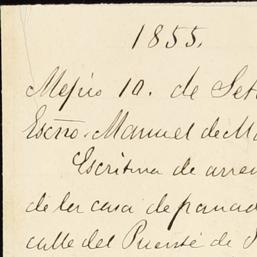 1855.
Mejico 10. de Set
Escno. Manuel de Ma
Escritura de arren
de la casa de panad
calle del Puente de S